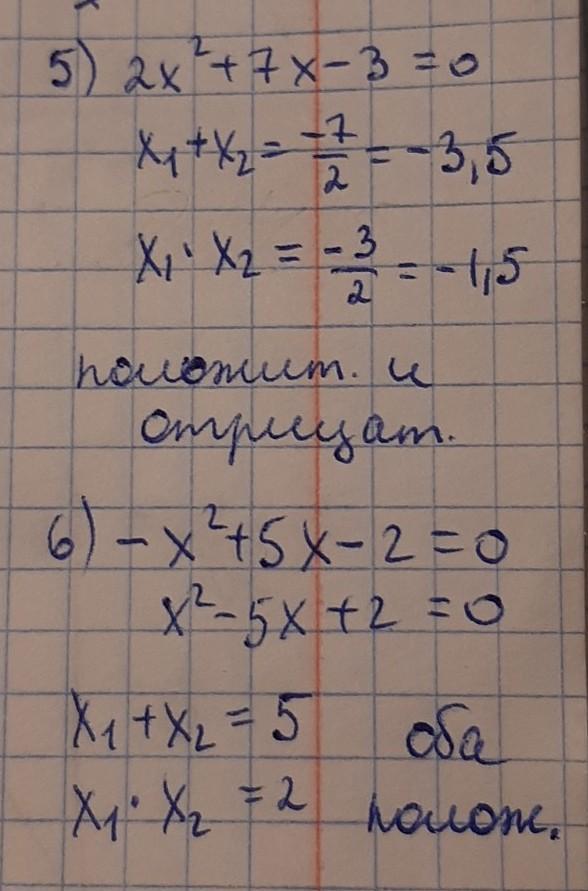 5) 2x² + 7x - 3 = 0
x₁ + x₂ = -7/2 = -3,5
x₁ · x₂ = -3/2 = -1,5
положит. и
отрицат.
6) -x² + 5x - 2 = 0
x² - 5x + 2 = 0
x₁ + x₂ = 5 оба
x₁ · x₂ = 2 полож.